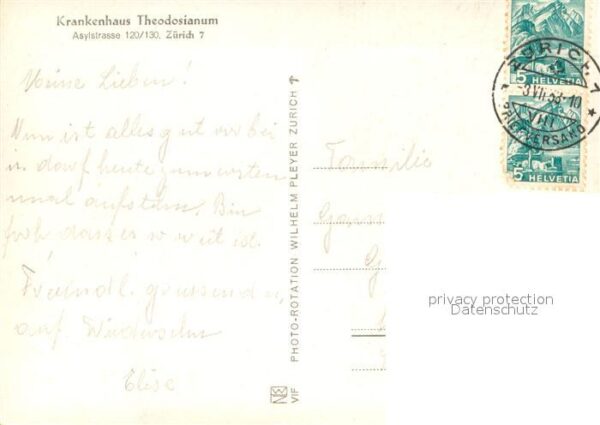 Krankenhaus Theodosianum
Asylstrasse 120/130, Zürich 7
Meine Lieben!
Nun ist alles gut vorbei
darf heute zum ersten
mal aufstehn. Bin
froh dass es so weit ist.
Freundl. grüssend
auf Wiedersehn
Elise
PHOTO-ROTATION WILHELM PLEYER ZÜRICH
VIF
Familie
5 HELVETIA
ZÜRICH 7
VII
BRIEFVERSAND
5 HELVETIA
privacy protection
Datenschutz